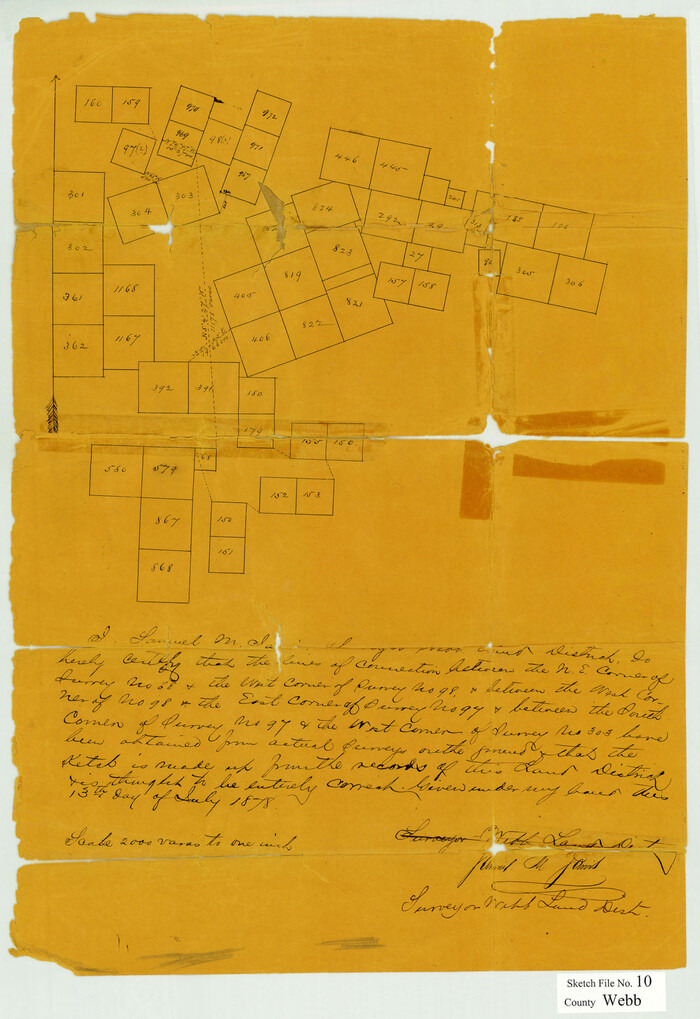 160 159
970 972
969 98(2) 971
97(2) 967
446 445
301 304 303
834
292
185
302
823
27
305 306
361 1168
405 819
157 158
821
822
362 1167
406
392 391 180
179
156
580 579 68
152 153
867 152
151
868
I, Samuel M. Land District, do
hereby certify that the lines of connection between the N.E. Corner of
Survey No 68 & the West Corner of Survey No 98, & between the West Cor-
ner of No 98 & the East Corner of Survey No 97 & between the South
Corner of Survey No 97 & the West Corner of Survey No 303 have
been obtained from actual Surveys on the ground & that the
Sketch is made up from the records of this Land District
& is thought to be entirely correct. Given under my hand this
13th day of July 1878.
Scale 2000 varas to one inch
Surveyor Webb Land Dist
Surveyor Webb Land Dist.
Sketch File No. 10
County Webb